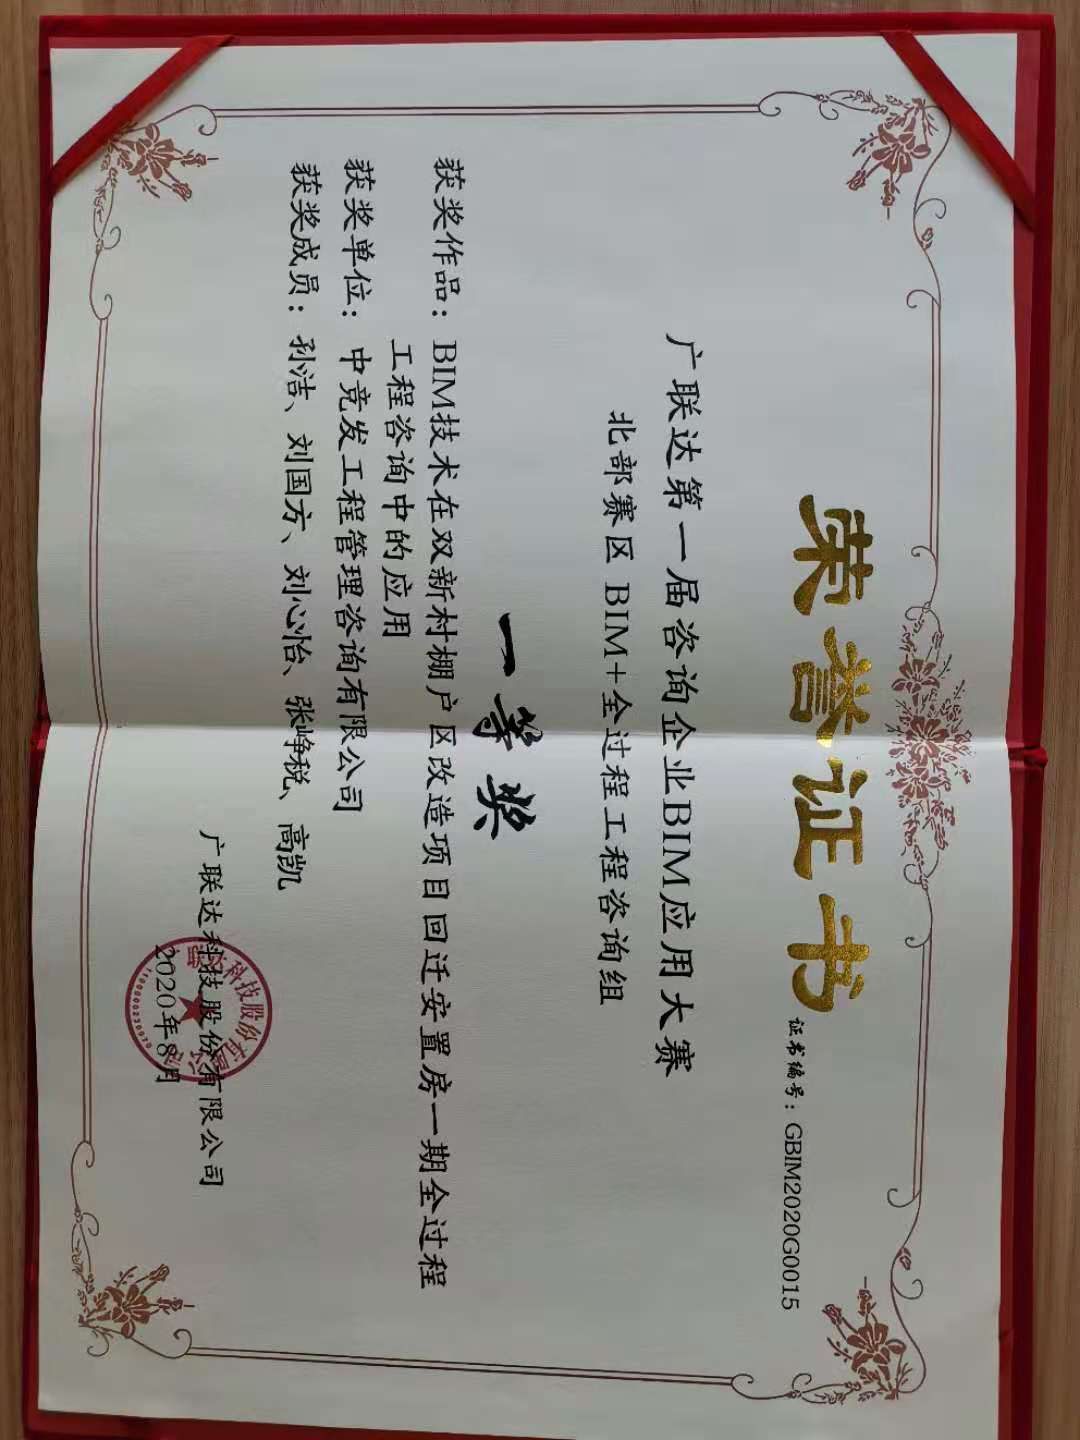 荣誉证书
证书编号：GBIM2020G0015
广联达第一届咨询企业BIM应用大赛
北部赛区 BIM+全过程工程咨询组
一等奖
获奖作品：BIM技术在双新村棚户区改造项目回迁安置房一期全过程
工程咨询中的应用
获奖单位：中竞发工程管理咨询有限公司
获奖成员：孙洁、刘国方、刘心怡、张峥税、高凯
广联达科技股份有限公司
2020年8月